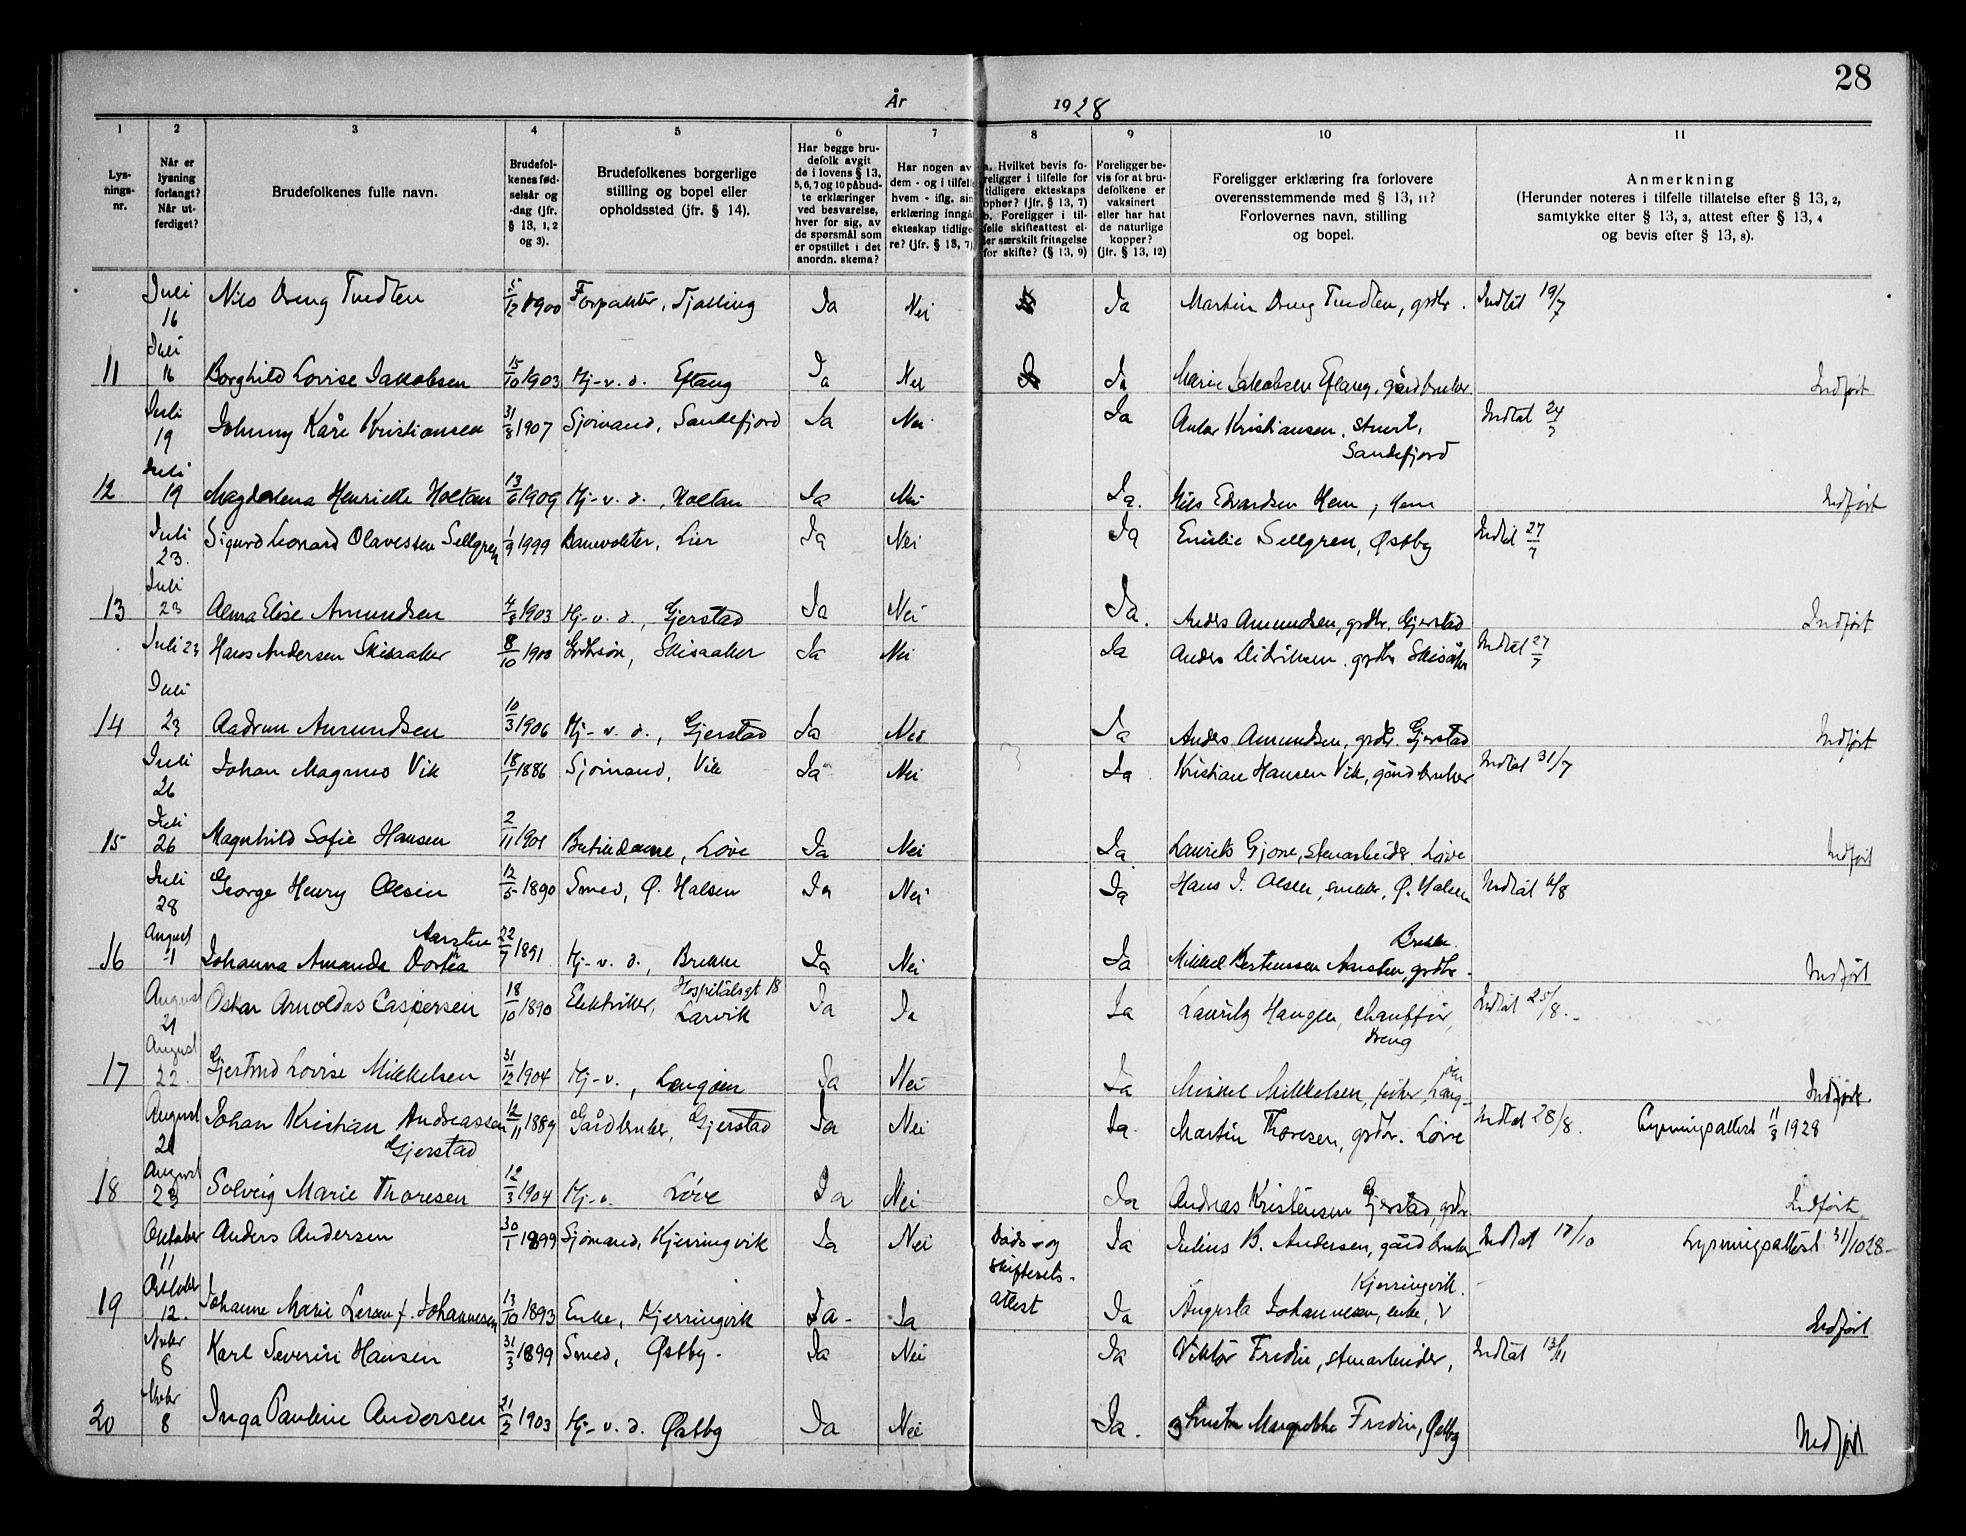 28
År 1928
1 2 3 4 5 6 7 8 9 10 11
Lys-
nings-
nr.
Når er
lysning
forlangt?
Når ut-
ferdiget?
Brudefolkenes fulle navn.
Brudefol-
kenes fød-
selsår og
-dag (jfr.
§ 13, 1, 2
og 3).
Brudefolkenes borgerlige
stilling og bopel eller
opholdssted (jfr. § 14).
Har begge bru-
defolk avgit
de i lovens § 13,
5, 6, 7 og 10 påbud-
te erklæringer
ved besvarelse,
hver for sig, av
de spørsmål som
er opstillet i det
anordn. skema?
Har nogen av
dem - og i tilfelle
hvem - iflg. sin
erklæring inngå
ekteskap tidlige-
re? (jfr. § 13, 7)
a. Hvilket bevis fo-
religger i tilfelle for
tidligere ekteskaps
ophør? (jfr. § 13, 7)
b. Foreligger i til-
felle skifteattest el-
ler særskilt fritagelse
for skifte? (§ 13, 9)
Foreligger be-
vis for at bru-
defolkene er
vaksinert
eller har hat
de naturlige
kopper?
(jfr. § 13, 12)
Foreligger erklæring fra forlovere
overensstemmende med § 13, 11?
Forlovernes navn, stilling
og bopel.
Anmerkning
(Herunder noteres i tilfelle tillatelse efter § 13, 2,
samtykke efter § 13, 3, attest efter § 13, 4
og bevis efter § 13, 8).
Juli 16 Nils Dreng Tvedten 5/12 1900 Forpakter, Tjølling Ja Nei Ja Martin Dreng Tvedten, grdbr. Indtat 19/7
11 Juli 16 Borghild Lovise Jakobsen 15/10 1903 Hj-v. d. Eftang Ja Nei Ja Marie Jakobsen Eftang, gårdbruker Indført
Juli 19 Johnny Kåre Kristiansen 31/8 1907 Sjømand, Sandefjord Ja Nei Ja Anton Kristiansen, stuert, Sandefjord Indtat 24/7
12 Juli 19 Magdalena Henriette Holtan 13/6 1909 Hj-v. d., Holtan Ja Nei Ja. Nils Edvardsen Hem, Hem Indført
Juli 23. Sigurd Leonard Olavessen Sellgren 1/9 1999 Banevokter, Lier Ja Nei Ja Emilie Sellgren, Østby Indtat 27/7
13 Juli 23 Alma Elise Amundsen 4/8 1903 Hj-v. d., Gjerstad Ja Nei Ja. Anders Amundsen, grdbr. Gjerstad Indført
Juli 23 Hans Andersen Skisaaker 8/10 1900 Grdbrsøn, Skisaaker Ja Nei Ja Anders Didriksen, grdbr Skisåker Indtat 27/7
14 Juli 23 Aadrun Amundsen 10/3 1906 Hj-v. d., Gjerstad Ja Nei Ja Anders Amundsen, grdbr. Gjerstad Indført
Juli 26 Johan Magnus Vik 18/1 1886 Sjømand, Vik Ja Nei Ja Kristian Hansen Vik, gårdbruker Indtat 31/7
15 Juli 26 Magnhild Sofie Hansen 2/11 1901 Butikdame, Løve Ja Nei Ja Laurits Gjone, stenarbeider Løve Indført
Juli 28 George Henry Olsen 12/5 1890 Smed, Ø. Halsen Ja Nei Ja Hans J. Olsen, snekker, Ø. Halsen Indtat 6/8
16 August 1 Johanna Amanda Dortea Aarsten 22/7 1891 Hj-v. d., Brekke Ja Nei Ja Mikkel Bertenssen Aarsten, grdbr. Brekke. Indført
August 21 Oskar Arnoldus Caspersen 18/10 1890 Elektriker, Hospitalsgt 18 Larvik Ja Ja Ja Lauritz Haugen, chauffør, Dreng Indtat 25/8.
17 August 22. Gjertrud Lovise Mikkelsen 31/12 1904 Hj-v., Langøen Ja Nei Ja Mikkel Mikkelsen, fisker, Langøen Indført.
August 21 Johan Kristian Andreassen Gjerstad 12/11 1889 Gårdbruker, Gjerstad Ja Nei Ja Martin Thoresen, grdbr. Løve Indtat 28/8. Lysningsattest 11/8 1928
18 August 23 Solveig Marie Thoresen 12/3 1904 Hj-v. Løve Ja Nei Ja Andreas Kristensen Gjerstad, grdbr. Indført
Oktober 11 Anders Andersen 30/1 1899 Sjømand, Kjerringvik Ja Nei Døds- og skifteretsattest Ja Julius B. Andersen, gårdbruker Kjerringvik. Indtat 17/10 Lysningsattest 31/10 28
19 Oktober 12. Johanne Marie Larsen f. Johannesen 13/10 1893 Enke, Kjerringvik Ja Ja Ja Augusta Johannesen, enke, " Indført
Novbr 8 Karl Severin Hansen 31/3 1899 Smed, Østby. Ja Nei Ja Viktor Fredin, stenarbeider, Indtat 13/11
20 Novbr 8 Inga Pauline Andersen 21/2 1903 Hj-v. d. Østby Ja Nei Ja. Margrethe Fredin, Østby Indført